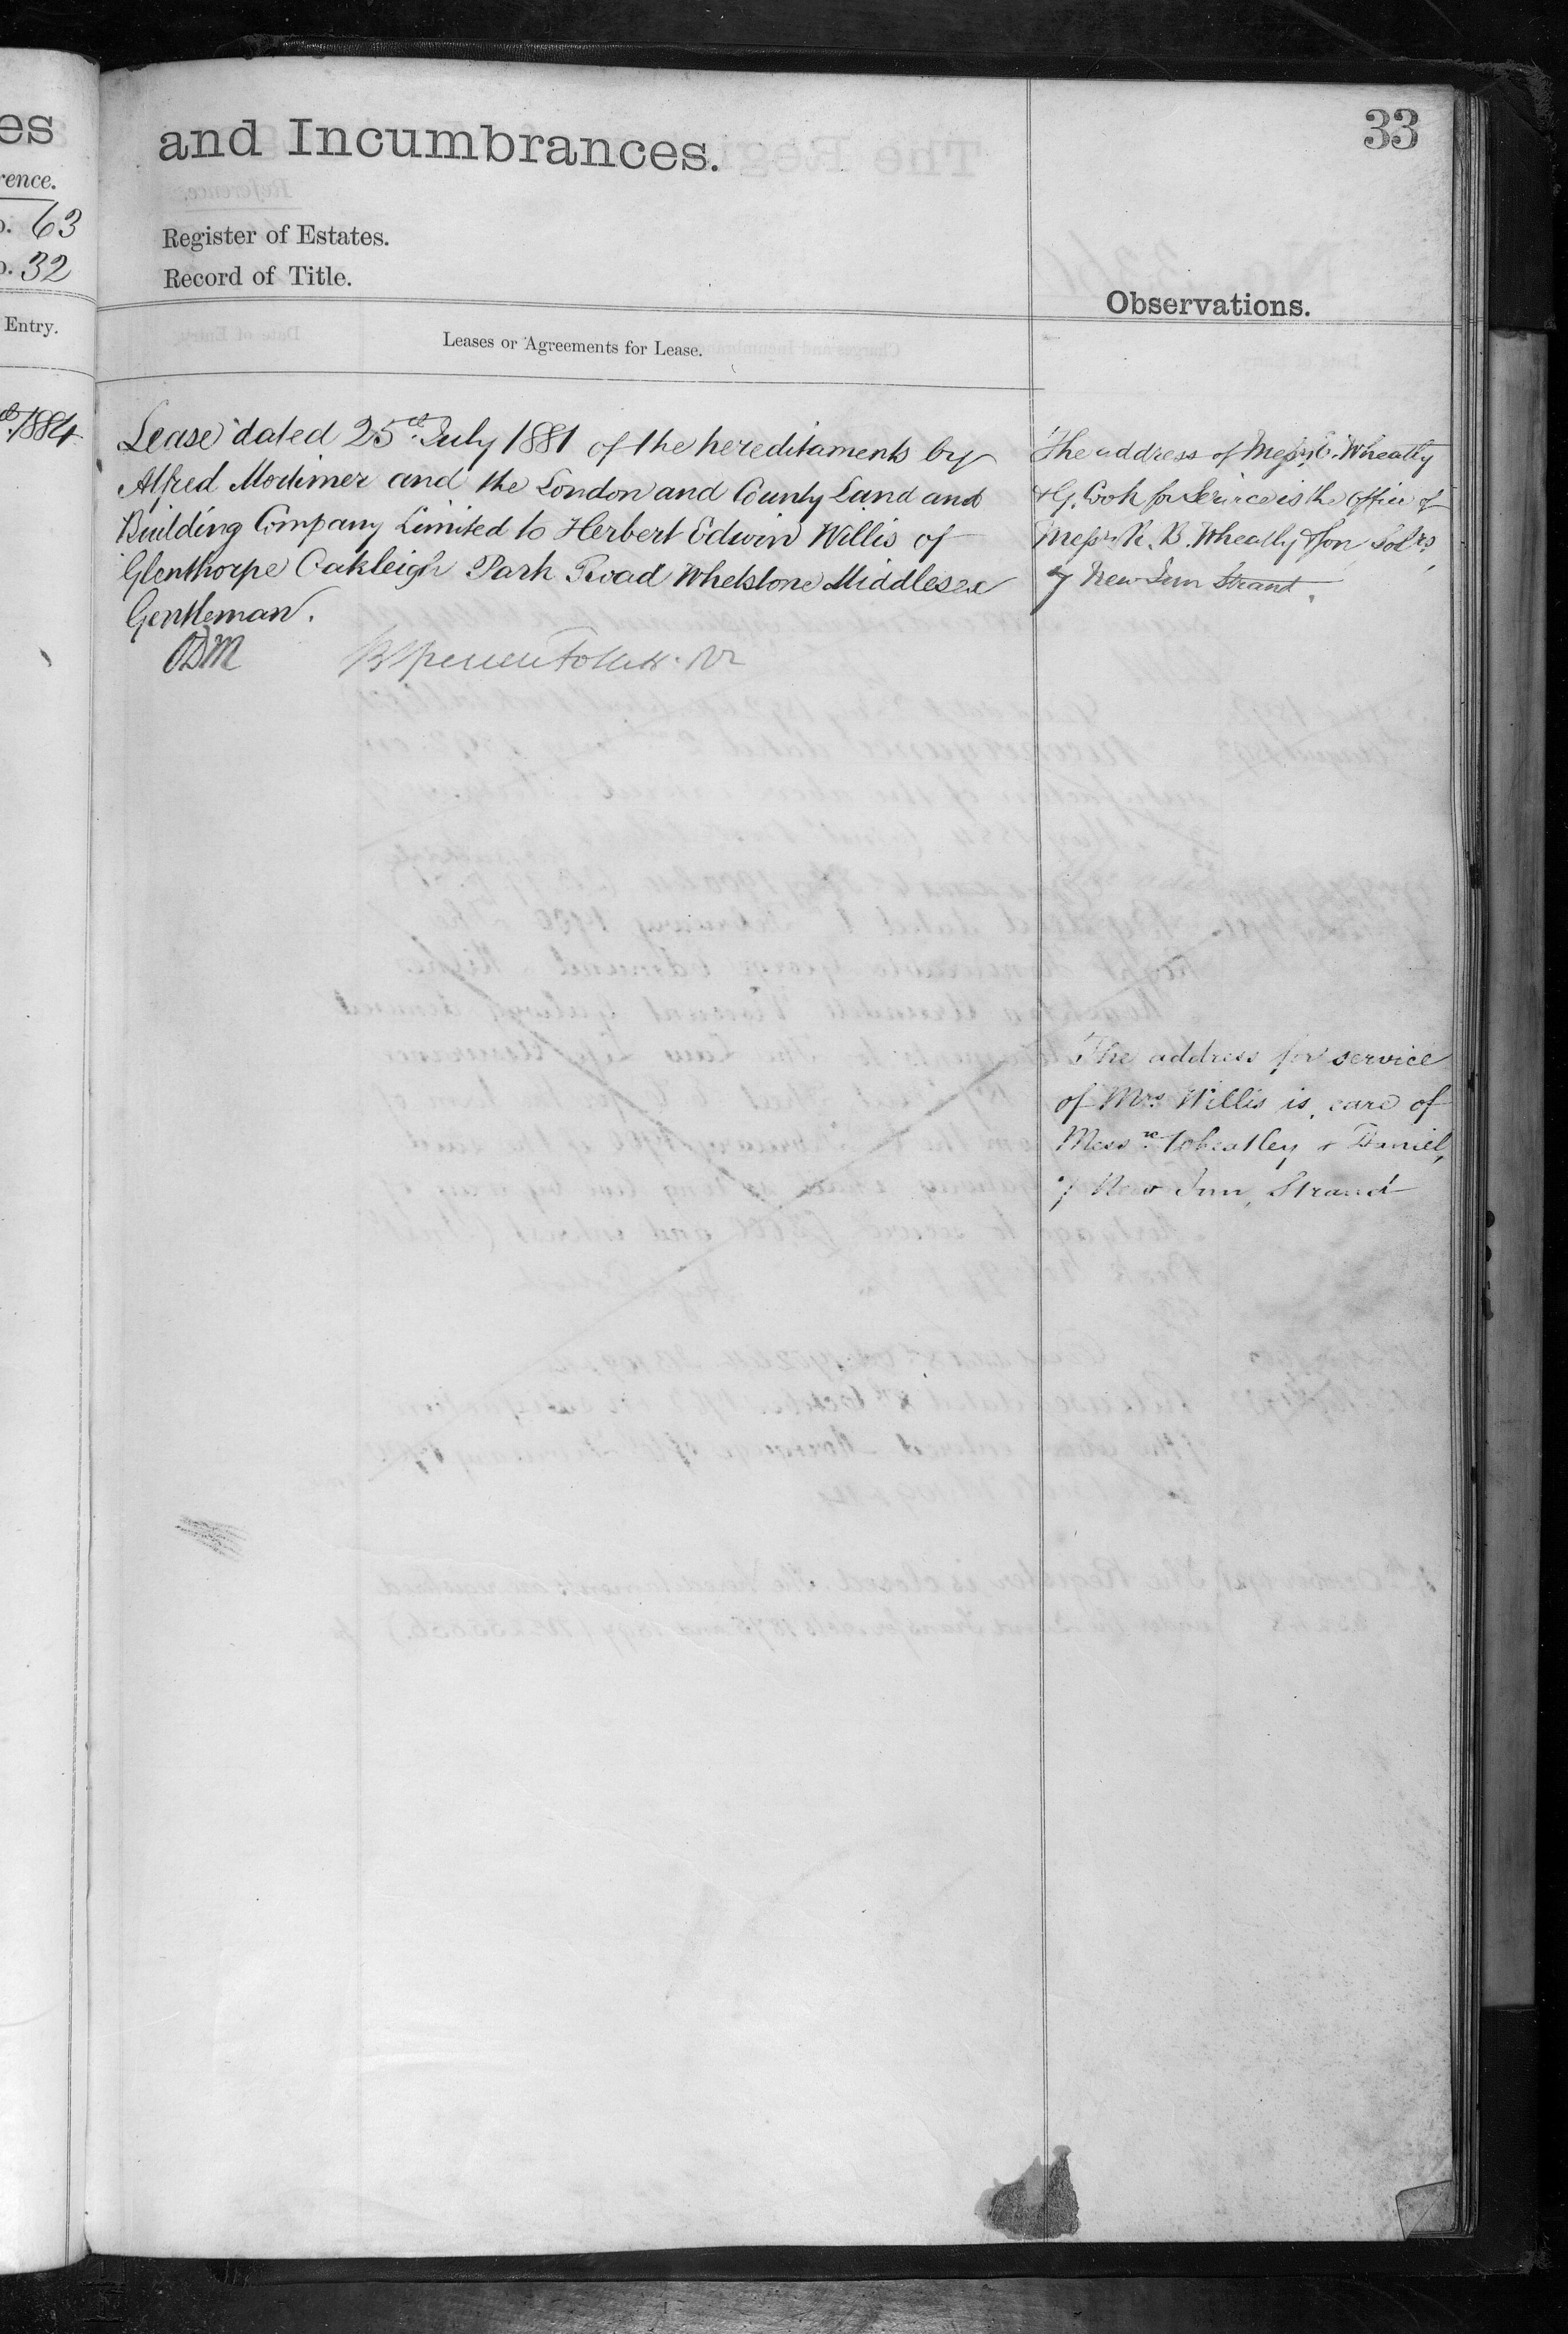 es
rence.
o. 63
o. 32
Entry.
1884
33
and Incumbrances.
Register of Estates.
Record of Title.
Observations.
Leases or Agreements for Lease.
Lease dated 25th July 1881 of the hereditaments by
Alfred Mortimer and the London and County Land and
Building Company Limited to Herbert Edwin Willis of
Glenthorpe Oakleigh Park Road Whetstone Middlesex
Gentleman.
The address of Messrs C. Wheatly
& G. Cook for Service is the office of
Messrs R. B. Wheatly & Son Solrs,
7 New Inn Strand.
The address for service
of Mrs Willis is, care of
Messrs Wheatley & Daniel,
7 New Inn, Strand